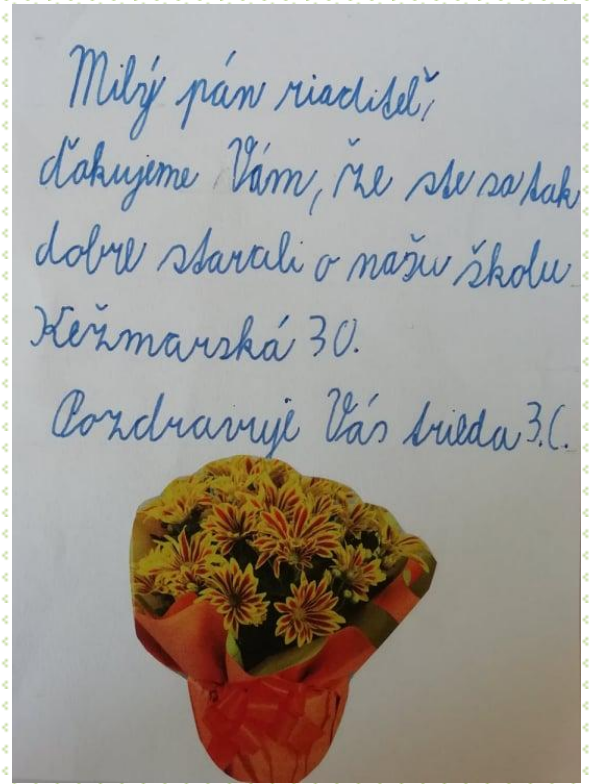 Milý pán riaditeľ,
ďakujeme Vám, že ste sa tak
dobre starali o našu školu
Kežmarská 30.
Pozdravuje Vás trieda 3.C.